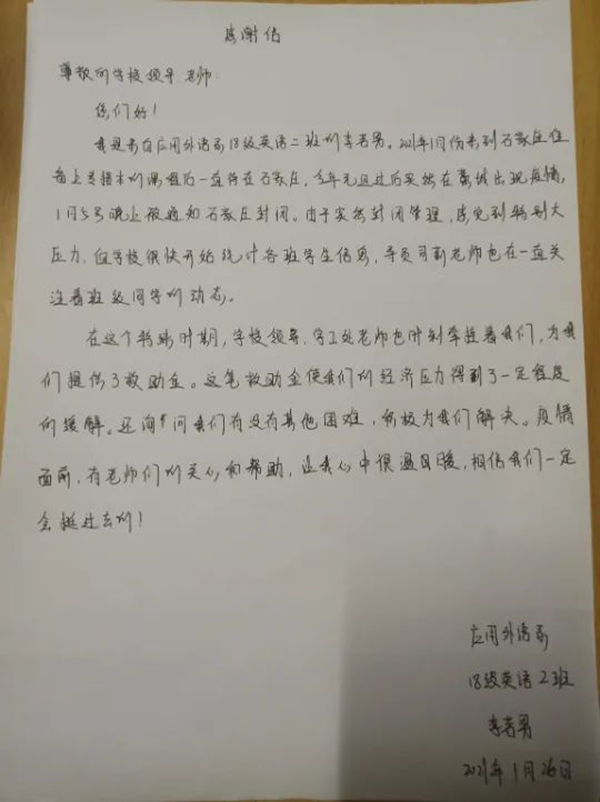 感谢信
尊敬的学校领导、老师:
您们好!
我是来自应用外语系18级英语二班的李若男。2021年1月份来到石家庄准
备上专接本的课程后一直待在石家庄,今年元旦过后突然在藁城出现疫情,
1月5号晚上被通知石家庄封闭。由于突然封闭管理,感受到特别大
压力,但学校很快开始统计各班学生信息,导员司新老师也在一直关
注着班级同学的动态。
在这个特殊时期,学校领导、学工处老师也时刻牵挂着我们,为我
们提供了救助金。这笔救助金使我们的经济压力得到了一定程度
的缓解。还询问我们有没有其他困难,积极为我们解决。疫情
面前,有老师们的关心和帮助,让我心中很温暖,相信我们一定
会挺过去的!
应用外语系
18级英语2班
李若男
2021年1月26日